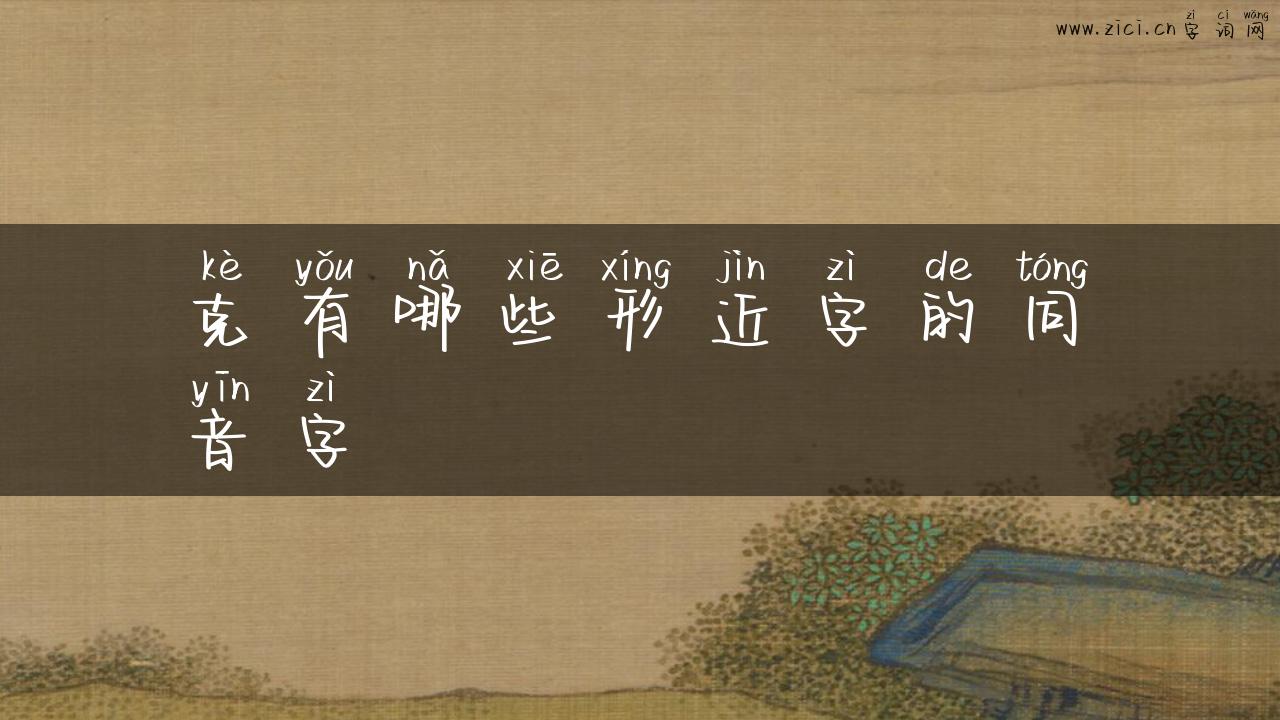 zì cí wǎng
www.zici.cn 字 词 网
kè yǒu nǎ xiē xíng jìn zì de tóng
克 有 哪 些 形 近 字 的 同
yīn zì
音 字